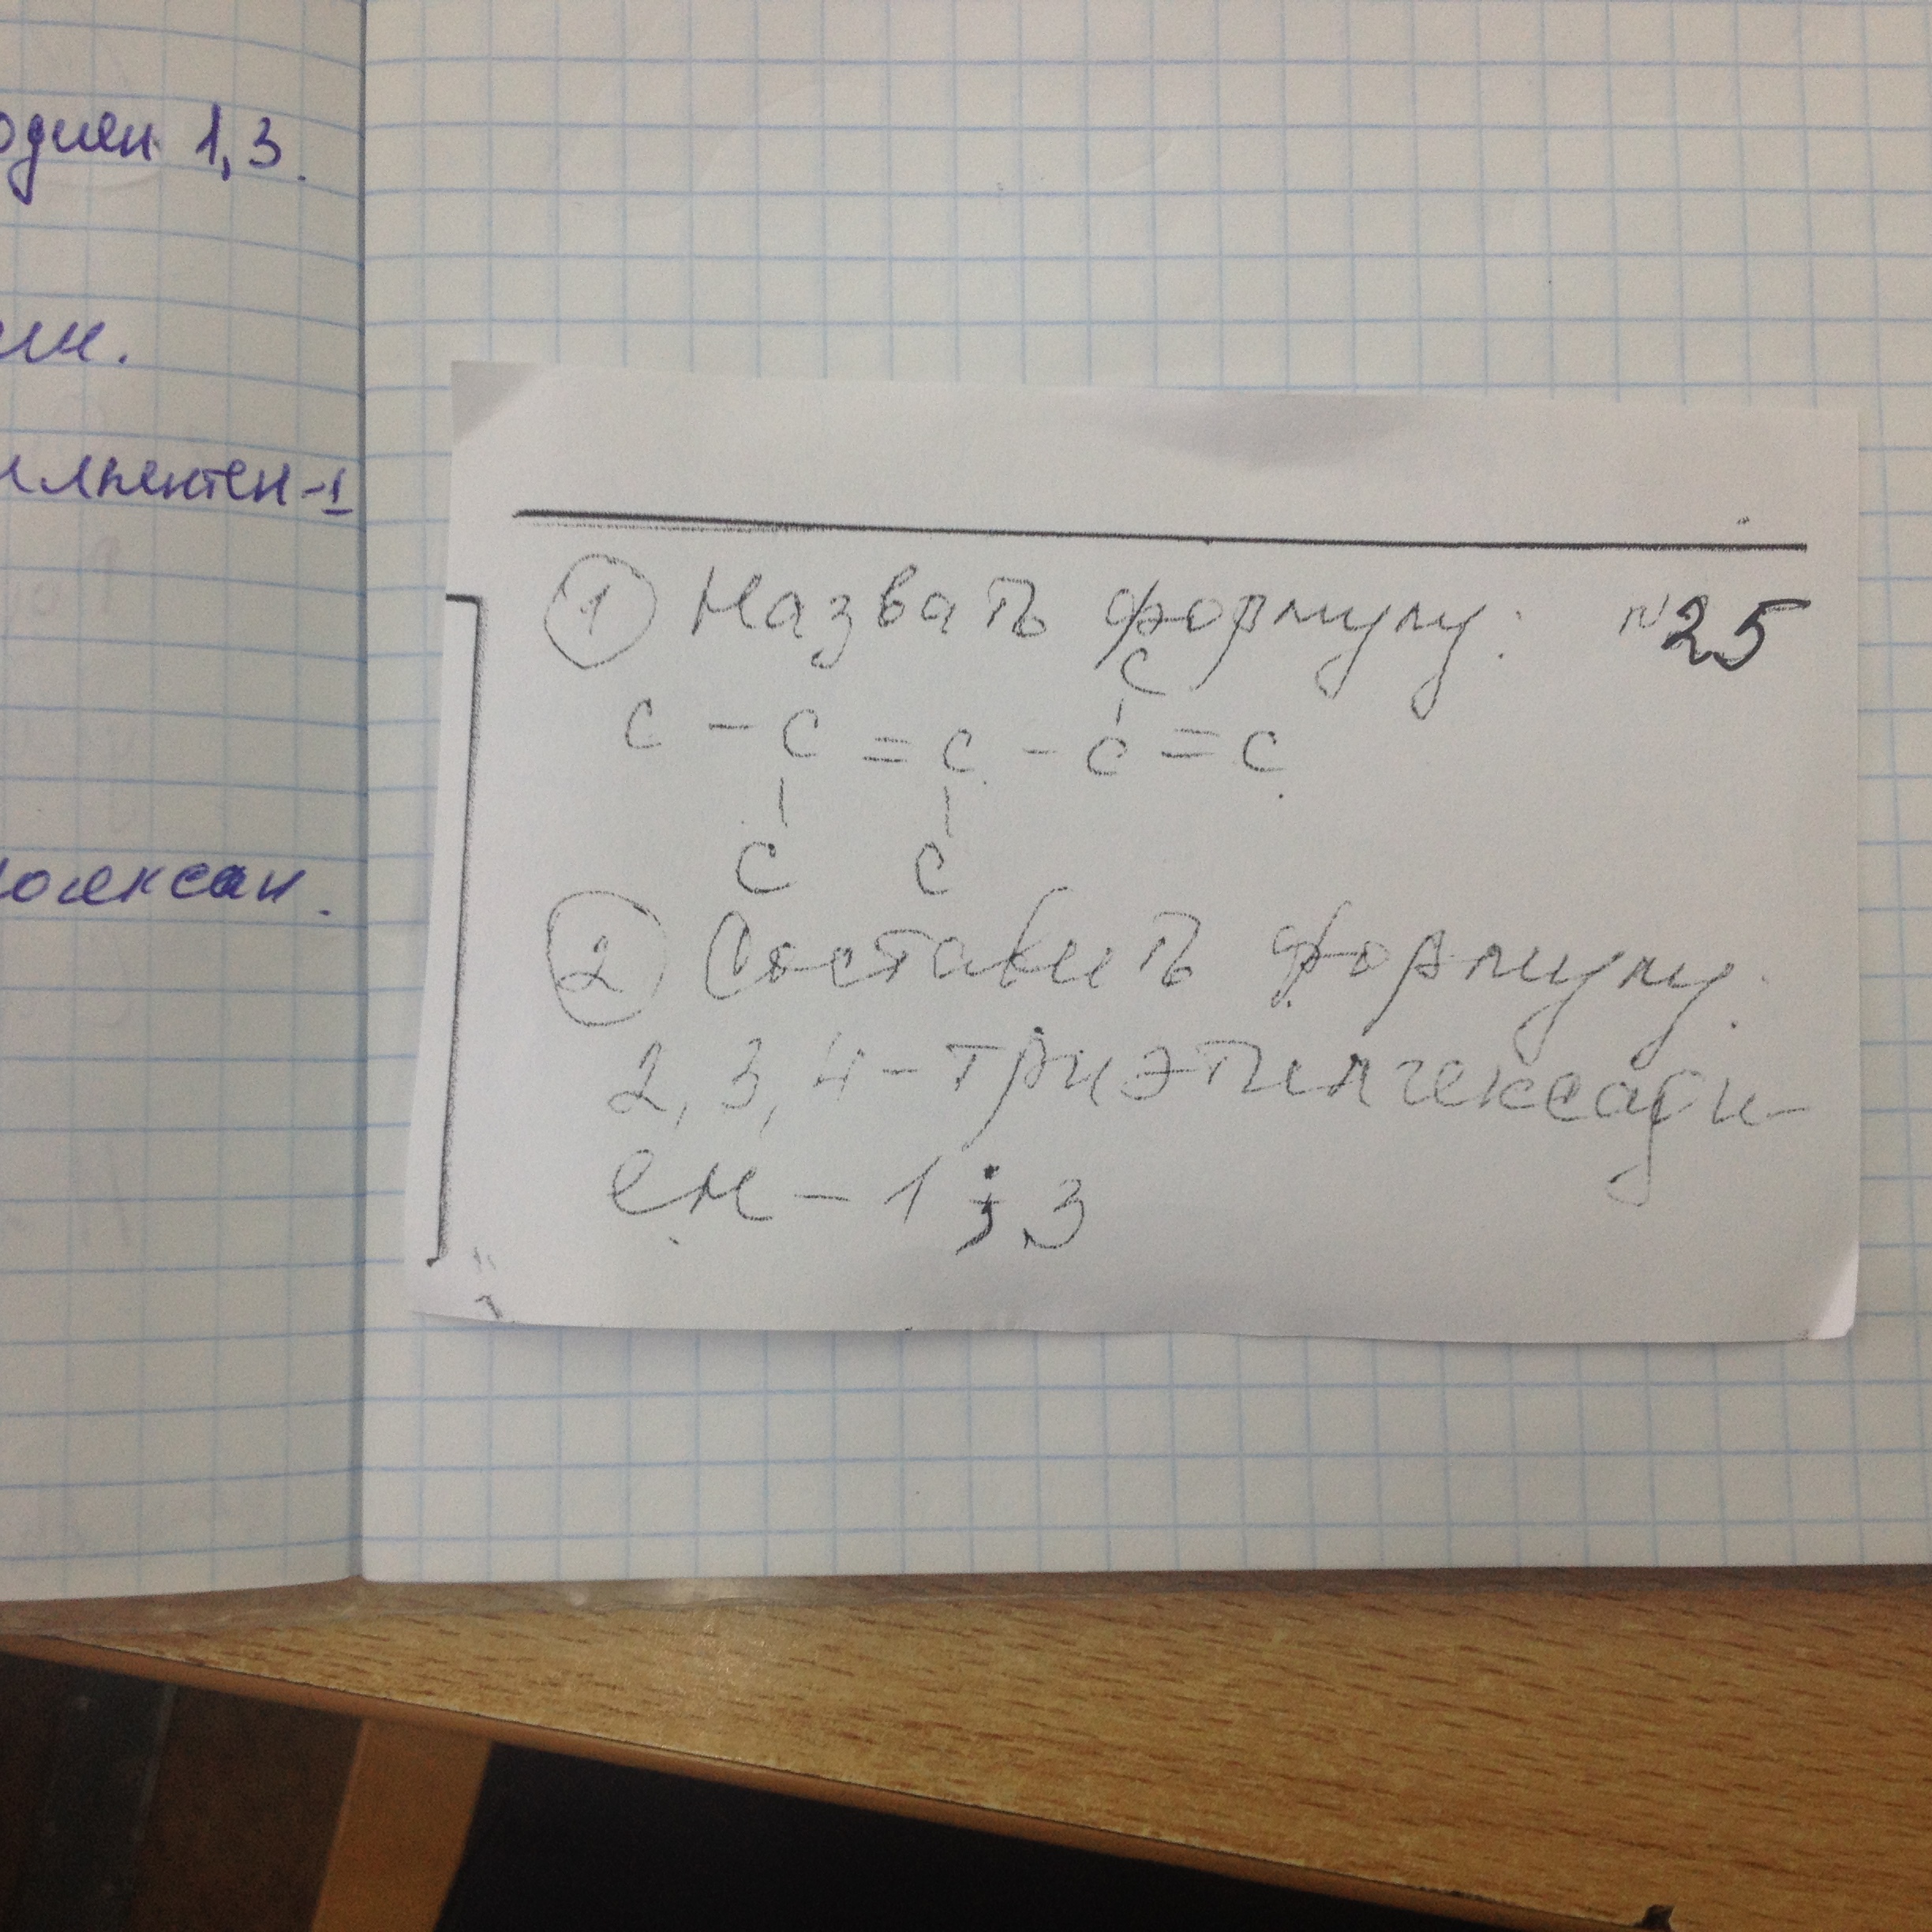 одиен 1,3.
ен.
илпентен-1
оексан.
1 Назвать формулу: N25
C
C - C = C - C = C
C C
2 Составить формулу:
2,3,4-триэтилгексади-
ен - 1;3